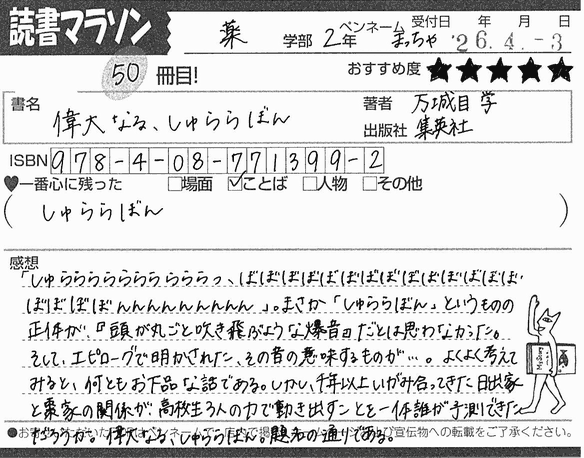 読書マラソン
薬 学部 2年 ペンネーム まっちゃ 受付日 年 月 日 '26.4.-3
50 冊目! おすすめ度 ★★★★★
書名 偉大なる、しゅららぼん
著者 万城目 学
出版社 集英社
ISBN 978-4-08-771399-2
♥一番心に残った □場面 ☑ことば □人物 □その他
( しゅららぼん )
感想
「しゅららららららら らららっ、ぼぼぼぼぼぼぼぼぼぼぼぼぼぼ
ぼぼぼぼんんんんんんんんん」。まさか「しゅららぼん」というものの
正体が、『頭が丸ごと吹き飛ぶような爆音』だとは思わなかった。
そして、エピローグで明かされた、その音の意味するものが…。よくよく考えて
みると、何ともお下品な話である。しかし、千年以上いがみ合ってきた日出家
と棗家の関係が、高校生3人の力で動き出すことを一体誰が予測できた
だろうか。偉大なる、しゅららぼん。題名の通りである。